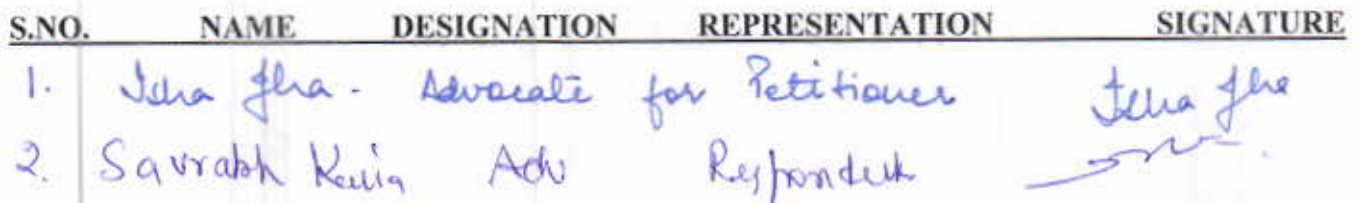 S.NO. NAME DESIGNATION REPRESENTATION SIGNATURE
1. Isha Jha - Advocate for Petitioner Isha Jha
2. Saurabh Adv Respondent